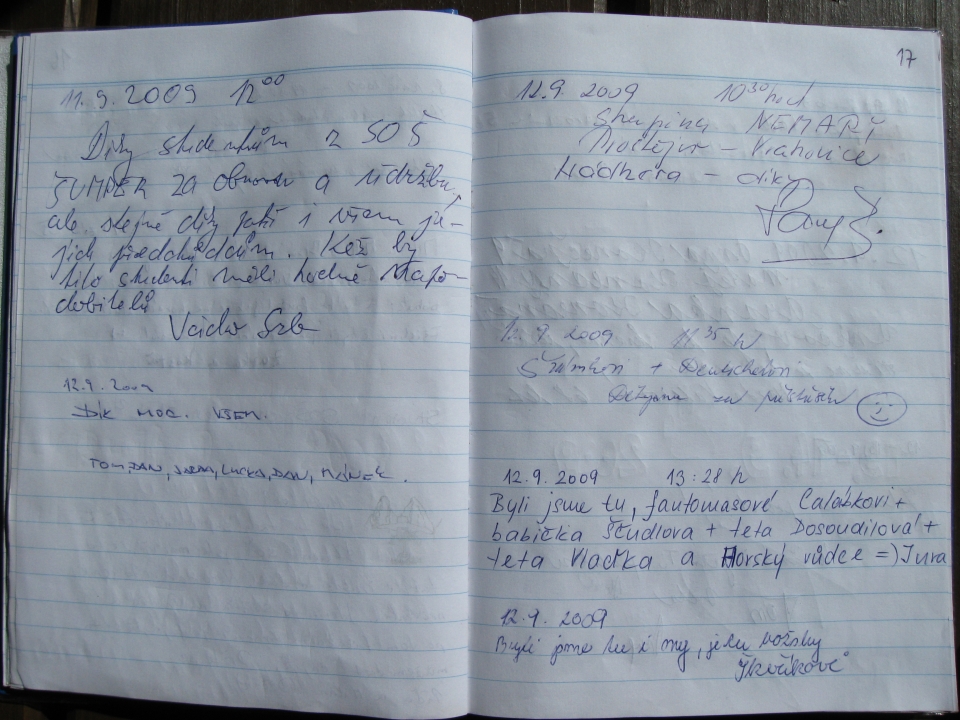 11.9.2009 12⁰⁰
Díky studentům z SOŠ
ŠUMPERK za obnovu a údržbu,
ale stejně díky patří i všem je-
jich předchůdcům. Kéž by
tito studenti měli hodně napo-
dobitelů
Václav Srb
12.9.2009
DÍK MOC. VŠEM.
TOM, DAN, JARDA, LUCKA, DAN, MÁNEK.
17
12.9.2009 10³⁰ hod
Skupina NEMAŘÍ
Vrahovice
Nádhera – díky
9 2009 11³⁵ h
+
Děkujeme za přístřeší
12.9.2009 13:28 h
Byli jsme tu, fautomasové Calábkovi +
babička Študlova + teta Dosoudilová +
teta Vlaďka a Horský vůdce =) Jura
12.9.2009
Byli jsme tu i my, jelu božsky